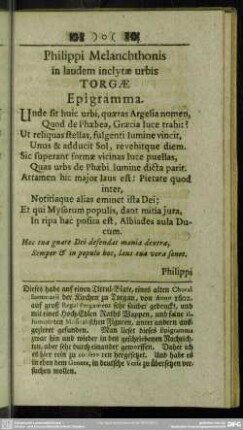 Philippi Melanchthonis
in laudem inclytæ urbis
TORGÆ
Epigramma.
Unde sit huic urbi, quæras Argelia nomen,
Quod de Phœbea, Græcia luce trahit?
Ut reliquas stellas, fulgenti lumine vincit,
Unus & adducit Sol, revehitque diem.
Sic superant formæ vicinas luce puellas,
Quas urbs de Phœbi lumine dicta parit.
Attamen hic major laus est: Pietate quod
inter,
Notitiaque alias eminet ista Dei;
Et qui Mysorum populis, dant mitia jura,
In ripa hac posita est, Albiades aula Du-
cum.
Hæc tua gnate Dei defendat mœnia dextra,
Semper & in populo hoc, laus tua vera sonet.
Philippi
Dieses habe auf einen Titul-Blate, eines alten Choral
der Kirchen zu Torgau, von Anno 1602.
auf groß Regal Pergament sehr sauber gedruckt, und
mit eines Hoch-Edlen Raths Wappen, und fein
Musicalischen Figuren, unter andern aus-
gezieret gefunden. Man lieset dieses Epigramma
zwar hin und wieder in den geschriebenen Nachrich-
ten, aber sehr durch einander geworffen. Daher ich
es hier rein zu ren hergesetzet. Und habe es
in eben dem Genere, in deutsche Verse zu übersetzen ver-
suchen wollen.